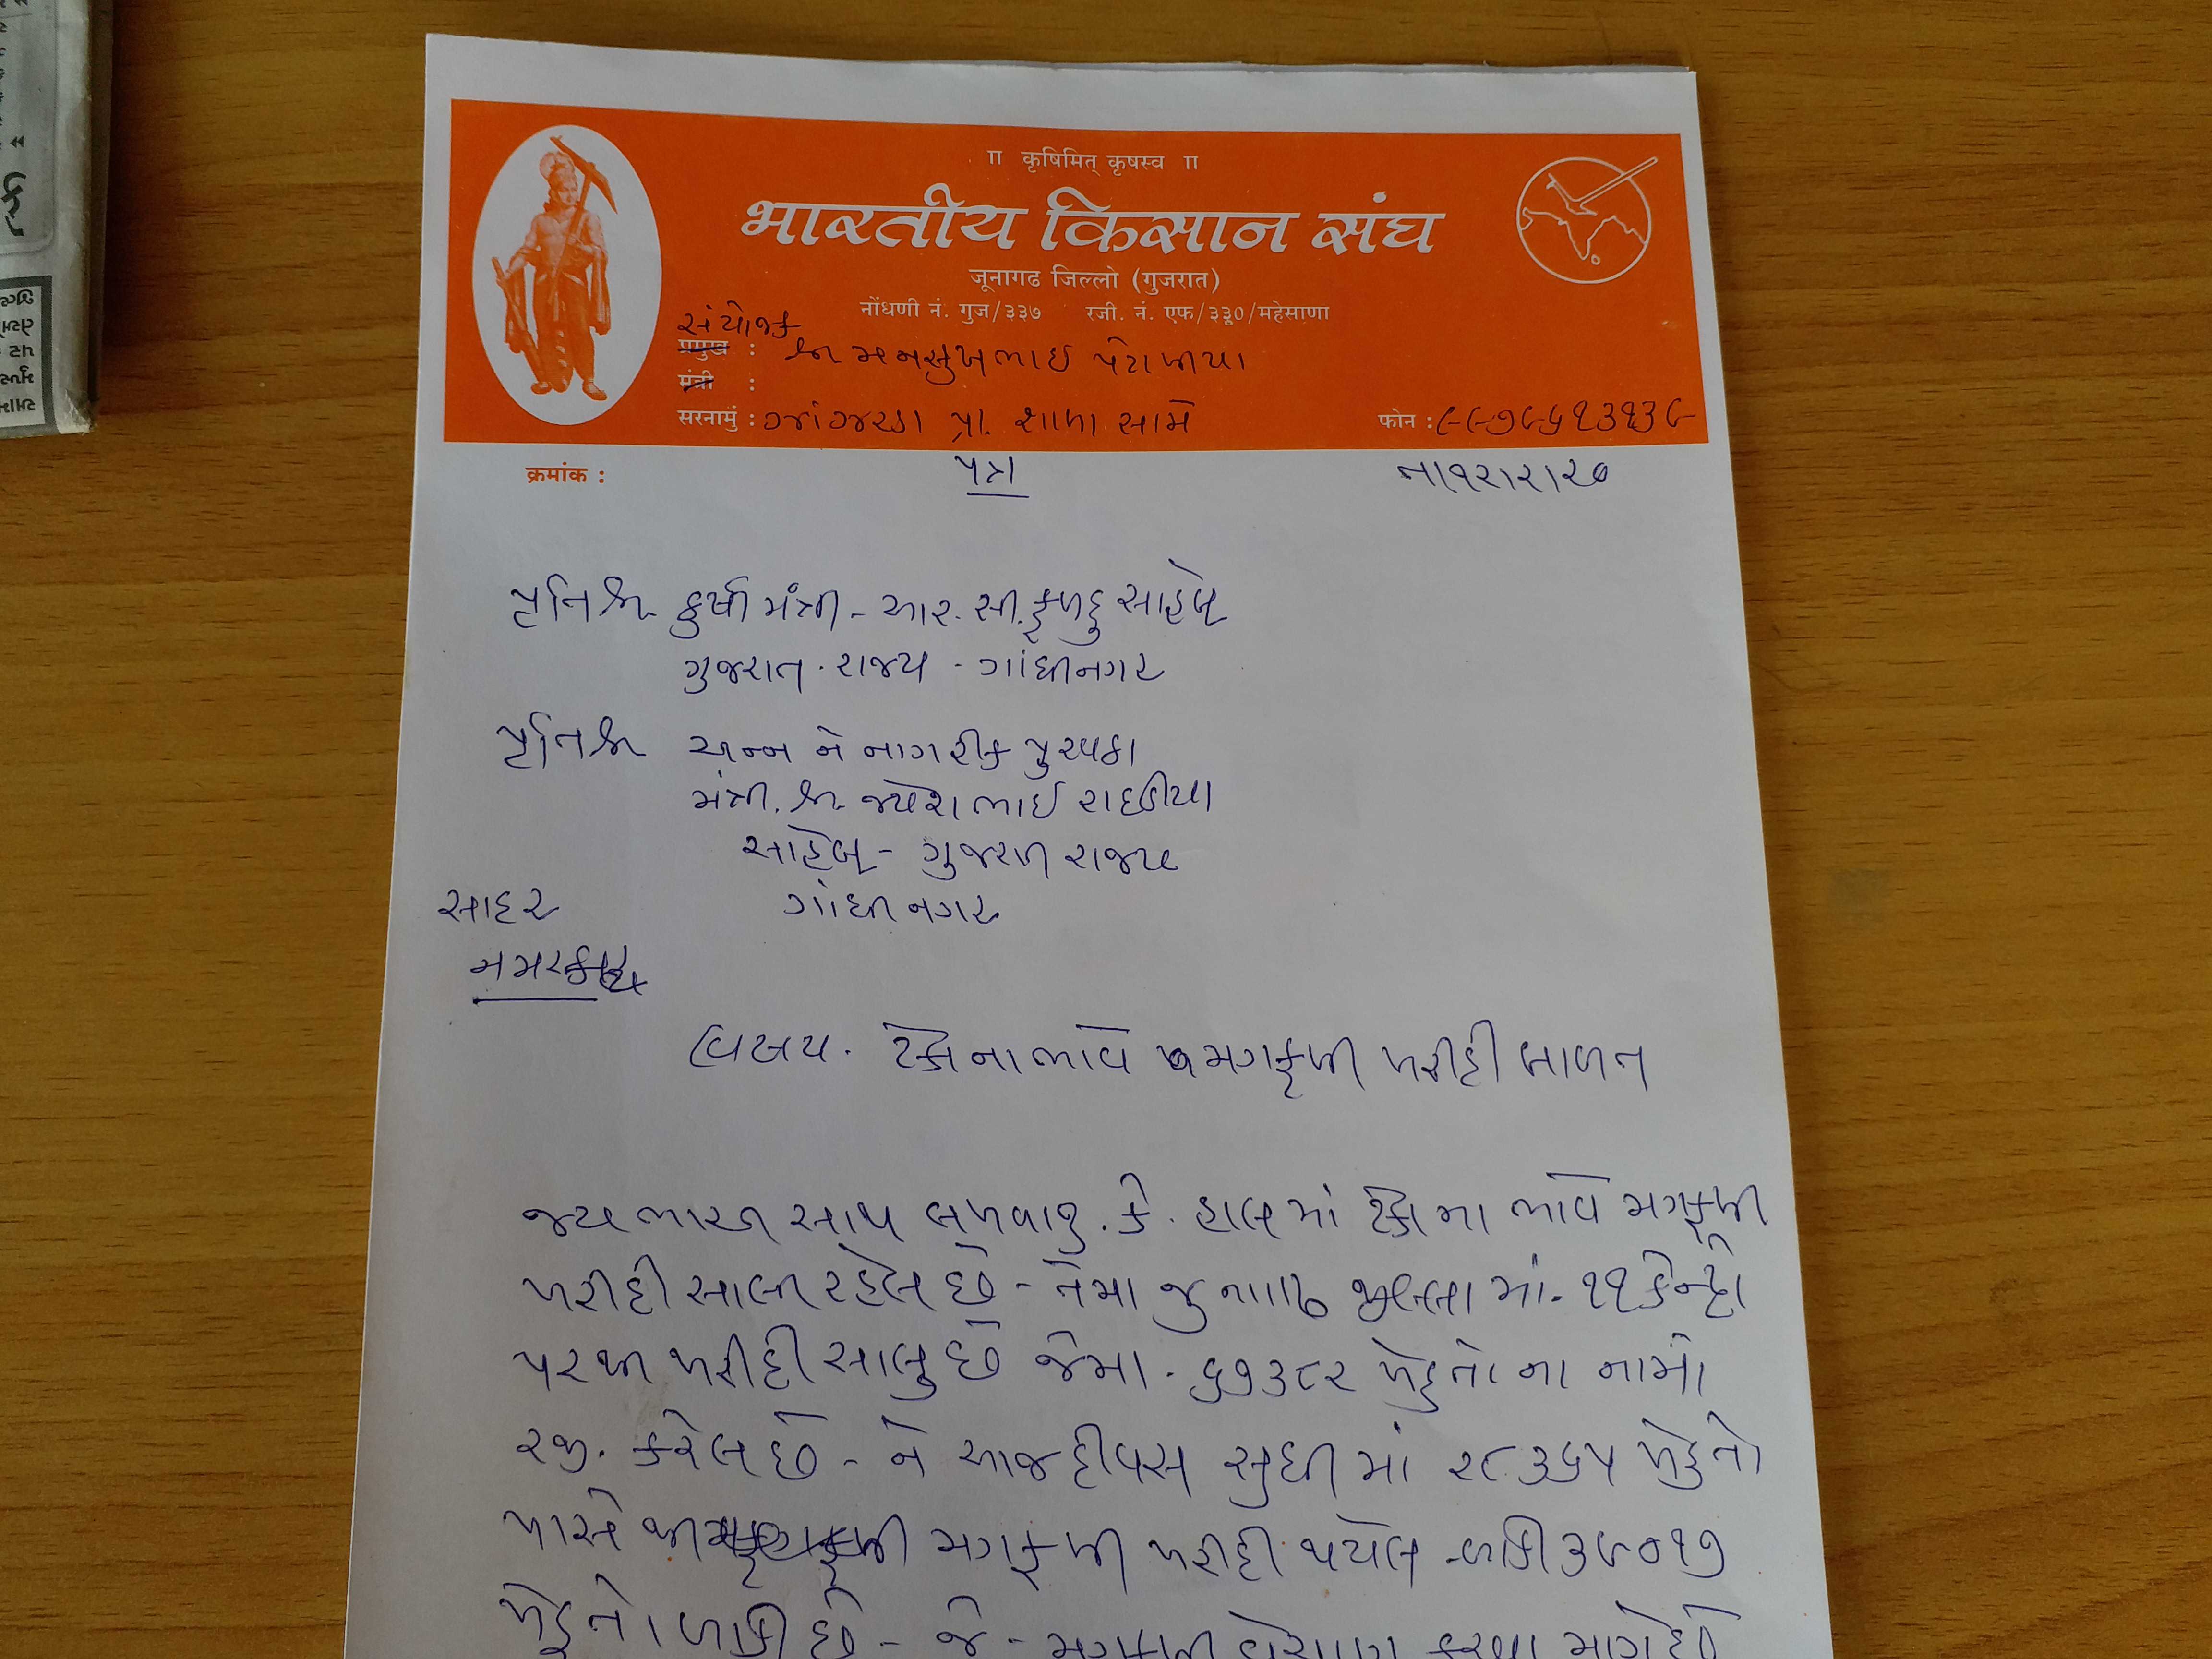 ॥ कृषिमित् कृषस्व ॥
भारतीय किसान संघ
जूनागढ जिल्लो (गुजरात)
नोंधणी नं. गुज/३३७ रजी. नं. एफ/३३०/महेसाणा
સંયોજક
प्रमुख : શ્રી મનસુખભાઈ પટોળીયા
मंत्री :
सरनामुं : ગાંગરડા પ્રા. શાળા સામે फोन :
क्रमांक : પત્ર તા૧૨/૨/૨૦
પ્રતિશ્રી કૃષી મંત્રી - આર. સી. ફળદુ સાહેબ
ગુજરાત. રાજ્ય - ગાંધીનગર
પ્રતિશ્રી અન્ન ને નાગરીક પુરવઠા
મંત્રી. શ્રી જયેશભાઈ રાદડીયા
સાહેબ - ગુજરાત રાજ્ય
સાદર ગાંધીનગર
નમસ્કાર
વિષય. ટેકાના ભાવે મગફળી ખરીદી બાબત
જય ભારત સાથ લખવાનુ. કે. હાલમાં ટેકાના ભાવે મગફળી
ખરીદી ચાલી રહેલ છે - તેમા જુનાગઢ જીલ્લામાં. ૧૧ કેન્દ્રો
પરથી ખરીદી ચાલુ છે જેમા. ૬૭૩૮૨ ખેડુતોના નામો
રજી. કરેલ છે - ને આજ દીવસ સુધીમાં ૨૮૩૬૫ ખેડુતો
પાસેથી મગફળી ખરીદી થયેલ - બાકી ૩૯૦૧૭
ખેડુતો બાકી છે - જે - મગફળી